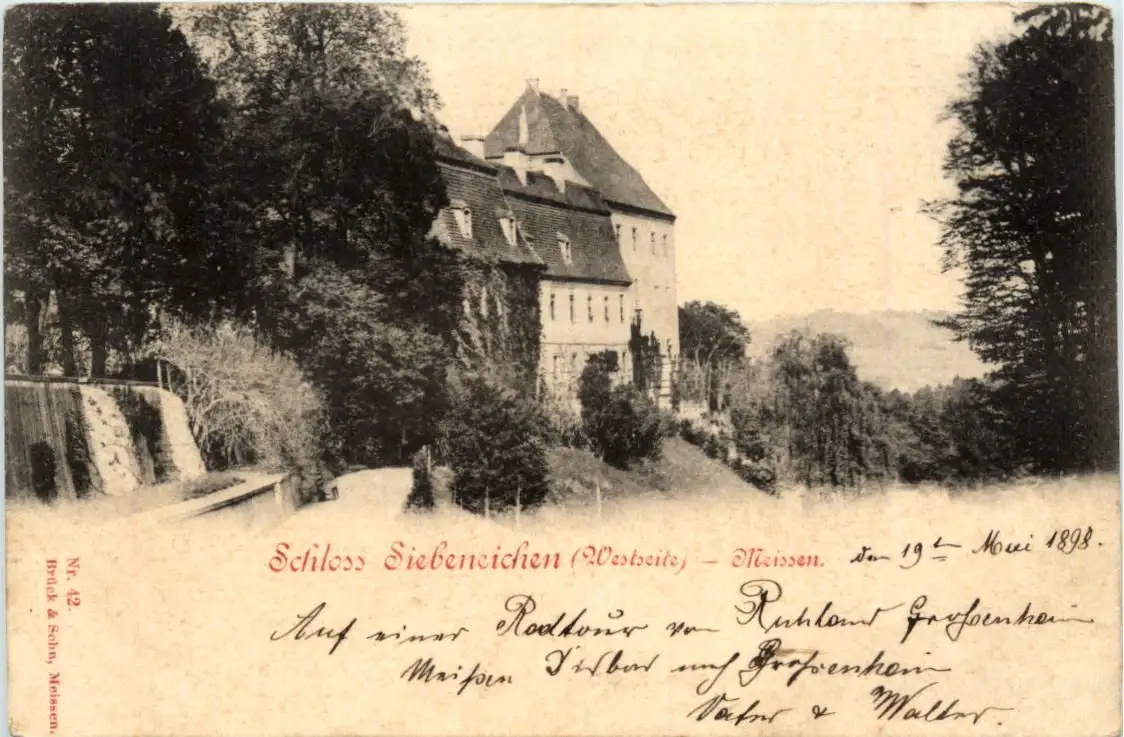 Schloss Siebeneichen (Westseite) – Meissen.
den 19ten Mai 1898.
Auf einer Radtour von Ruhland Großenhain
Meißen nach Großenhain
Vater & Walter.
Nr. 42.
Brück & Sohn, Meissen.